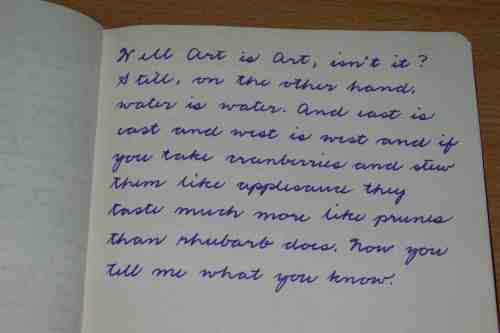 Well Art is Art, isn't it?
Still, on the other hand,
water is water. And east is
east and west is west and if
you take cranberries and stew
them like applesauce they
taste much more like prunes
than rhubarb does. Now you
tell me what you know.